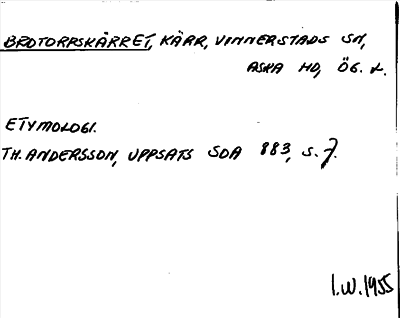 BROTORPSKÄRRET, KÄRR, VINNERSTADS SN,
ASKA HD, ÖG. L.
ETYMOLOGI.
TH. ANDERSSON, UPPSATS SOA 883, S. 7.
I.W. 1955